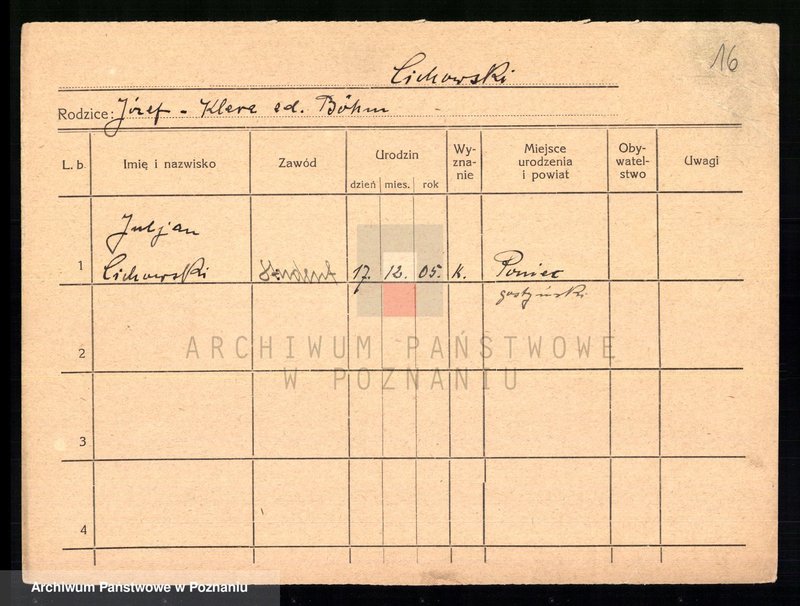 16
Cichowski
Rodzice: Józef - Klara zd. Böhm
L. b. Imię i nazwisko Zawód Urodzin Wy-zna-nie Miejsce urodzenia i powiat Oby-watel-stwo Uwagi
dzień mies. rok
Juljan
1 Cichowski Student 17. 12. 05. k. Poniec
gostyński
2
ARCHIWUM PAŃSTWOWE
W POZNANIU
3
4
Archiwum Państwowe w Poznaniu